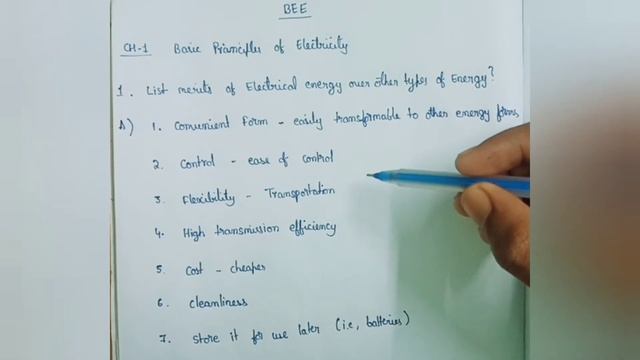 BEE
CH-1 Basic Principles of Electricity
1. List merits of Electrical energy over other types of Energy?
A) 1. Convenient Form - easily transformable to other energy forms,
2. Control - ease of control
3. Flexibility - Transportation
4. High transmission efficiency
5. Cost - cheaper
6. Cleanliness
7. Store it for use later (i.e, batteries)